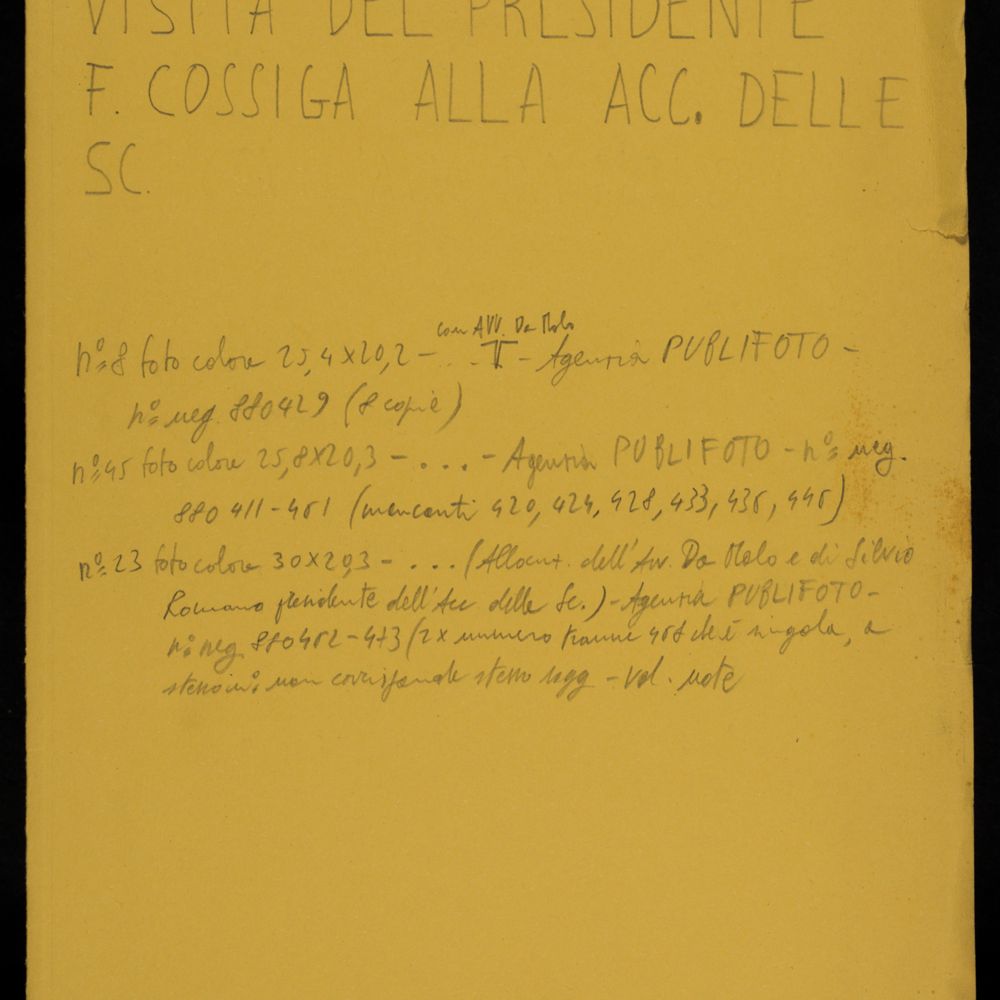 VISITA DEL PRESIDENTE
F. COSSIGA ALLA ACC. DELLE
SC.
con AVV. Da Molo
n° 8 foto colore 25,4x20,2 - ... - Agenzia PUBLIFOTO -
n° neg. 880429 (8 copie)
n° 45 foto colore 25,8x20,3 - ... - Agenzia PUBLIFOTO - n° neg.
880 411-461 (mancanti 420, 424, 428, 433, 436, 446)
n° 23 foto colore 30x20,3 - ... (Allocut. dell'Avv. Da Molo e di Silvio
Romano presidente dell'Acc delle Sc.) - Agenzia PUBLIFOTO -
n° neg. 880462-473 (2x numero tranne 468 che è singola, a
stesso n° non corrisponde stesso sogg - ved. note